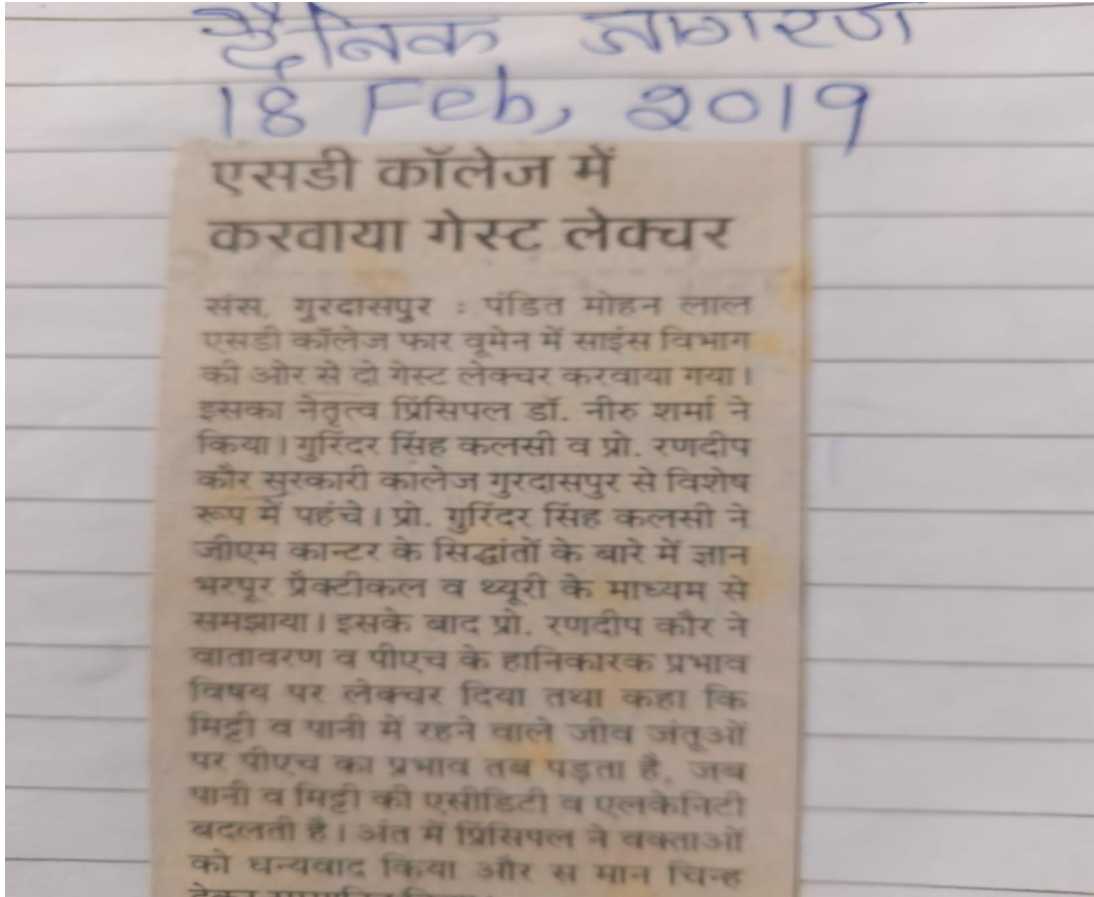 दैनिक जागरण
18 Feb, 2019
एसडी कॉलेज में
करवाया गेस्ट लेक्चर
संस, गुरदासपुर : पंडित मोहन लाल
एसडी कॉलेज फार वूमेन में साइंस विभाग
की ओर से दो गेस्ट लेक्चर करवाया गया।
इसका नेतृत्व प्रिंसिपल डॉ. नीरु शर्मा ने
किया। गुरिंदर सिंह कलसी व प्रो. रणदीप
कौर सुरकारी कालेज गुरदासपुर से विशेष
रूप में पहुंचे। प्रो. गुरिंदर सिंह कलसी ने
जीएम कान्टर के सिद्धांतों के बारे में ज्ञान
भरपूर प्रैक्टीकल व थ्यूरी के माध्यम से
समझाया। इसके बाद प्रो. रणदीप कौर ने
वातावरण व पीएच के हानिकारक प्रभाव
विषय पर लेक्चर दिया तथा कहा कि
मिट्टी व पानी में रहने वाले जीव जंतूओं
पर पीएच का प्रभाव तब पड़ता है, जब
पानी व मिट्टी की एसीडिटी व एलकेनिटी
बदलती है। अंत में प्रिंसिपल ने वक्ताओं
को धन्यवाद किया और स मान चिन्ह